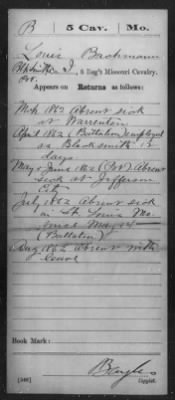 B | 5 Cav. | Mo.
Louis Bachmann
Pvt., Co. I, 5 Reg't Missouri Cavalry.
Appears on Returns as follows:
Mch 1862 Absent sick
at Warrenton
April 1862 (Battalion) employed
as Blacksmith 12
days
May & June 1862 Absent
sick at Jefferson
City
July 1862 Absent sick
in St. Louis Mo.
since May 24
(Battalion)
Aug 1862 Absent with
Leave
Book Mark:
(546)
Copyist.